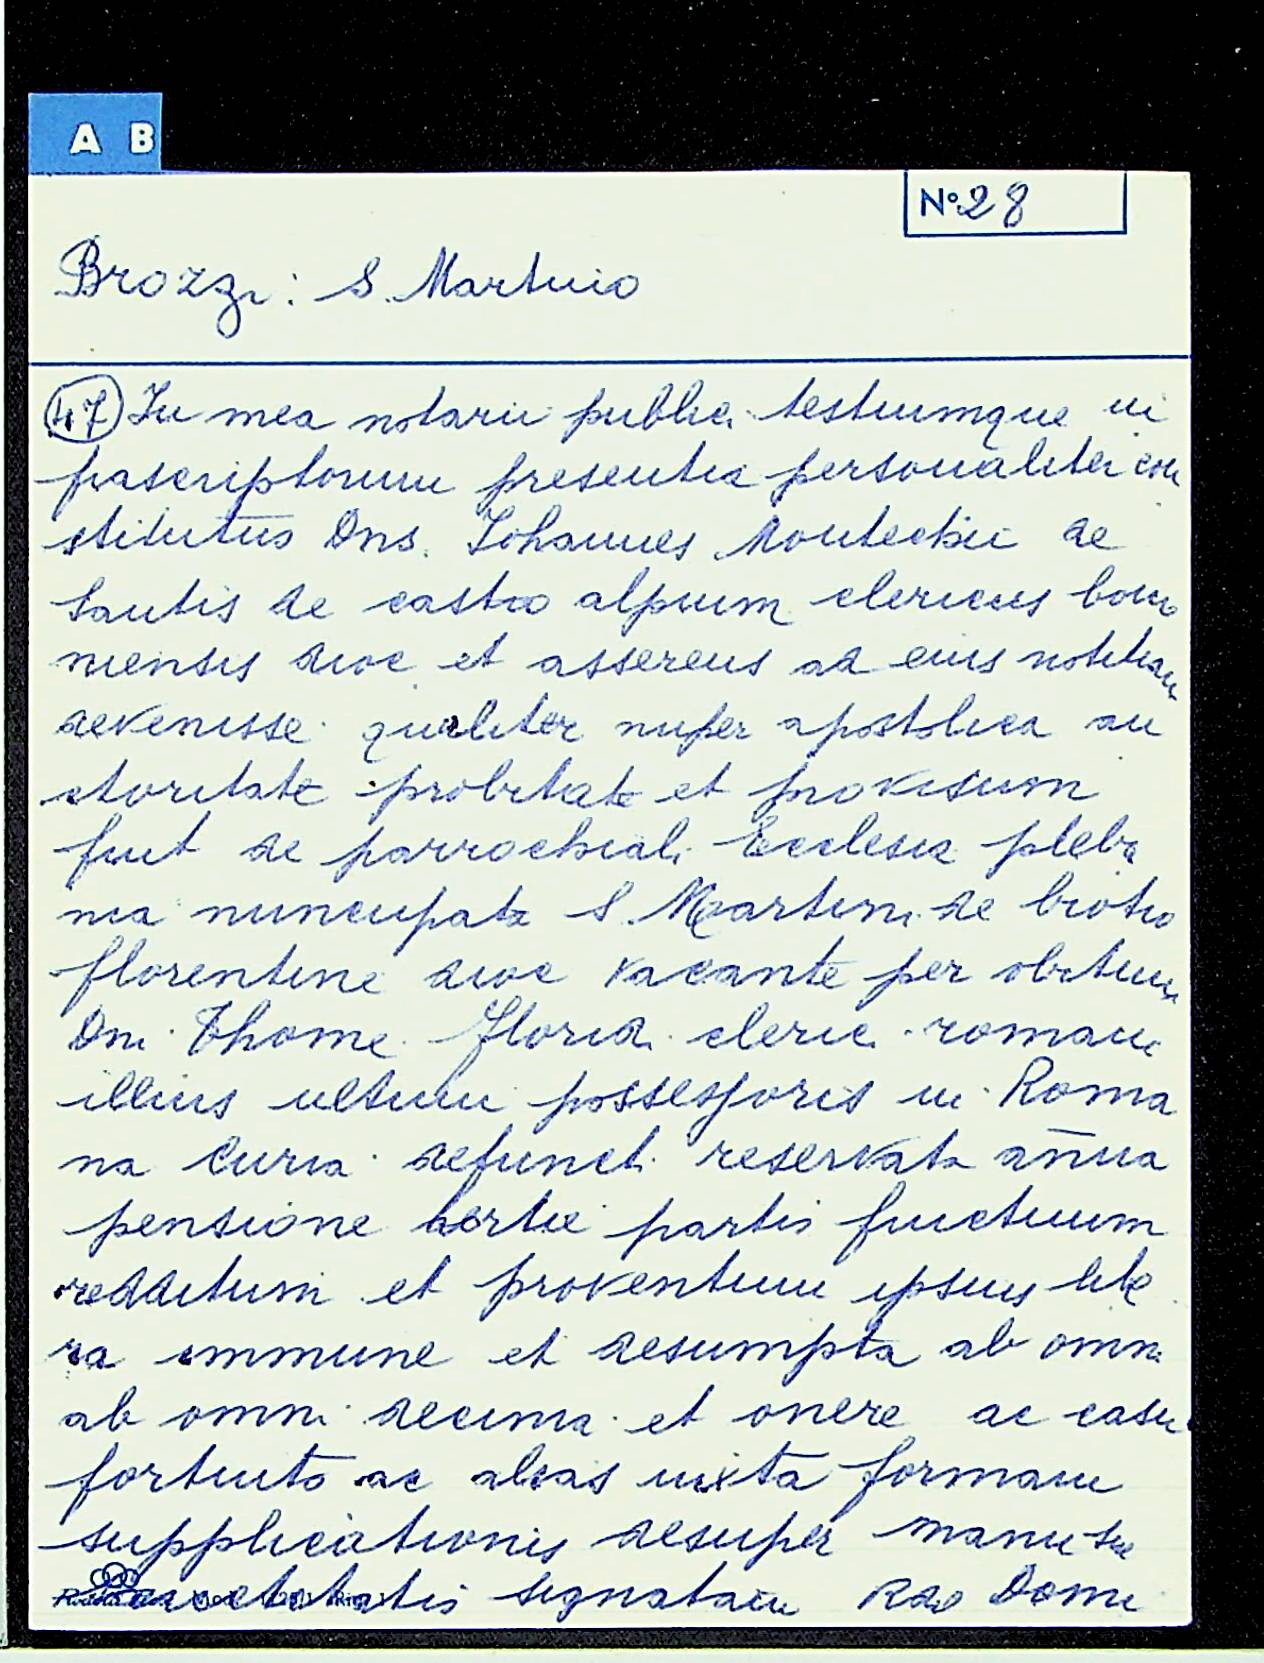 A B
N° 28
Brozzi: S. Martino
47 In mea notarii publici testiumque in
frascriptorum presentia personaliter con
stitutus Dns. Johannes Montechii de
Santis de castro alpium clericus bono
niensis dioc et asserens ad eius notitiam
devenisse qualiter nuper apostolica au
ctoritate probitate et provisum
fuit de parrochiali Ecclesia pleba
nia nuncupata S. Martini de brotio
florentine dioc vacante per obitum
Dni Thome Floridi clerici romani
illius ultimi possessoris in Roma
na Curia defuncti reservata añua
pensione tertie partis fructuum
reddituum et proventuum ipsius libe
ra immune et desumpta ab omni
ab omni decima et onere ac casu
fortuito ac alias iuxta formam
supplicationis desuper manu sue
signatam Rdo Domi